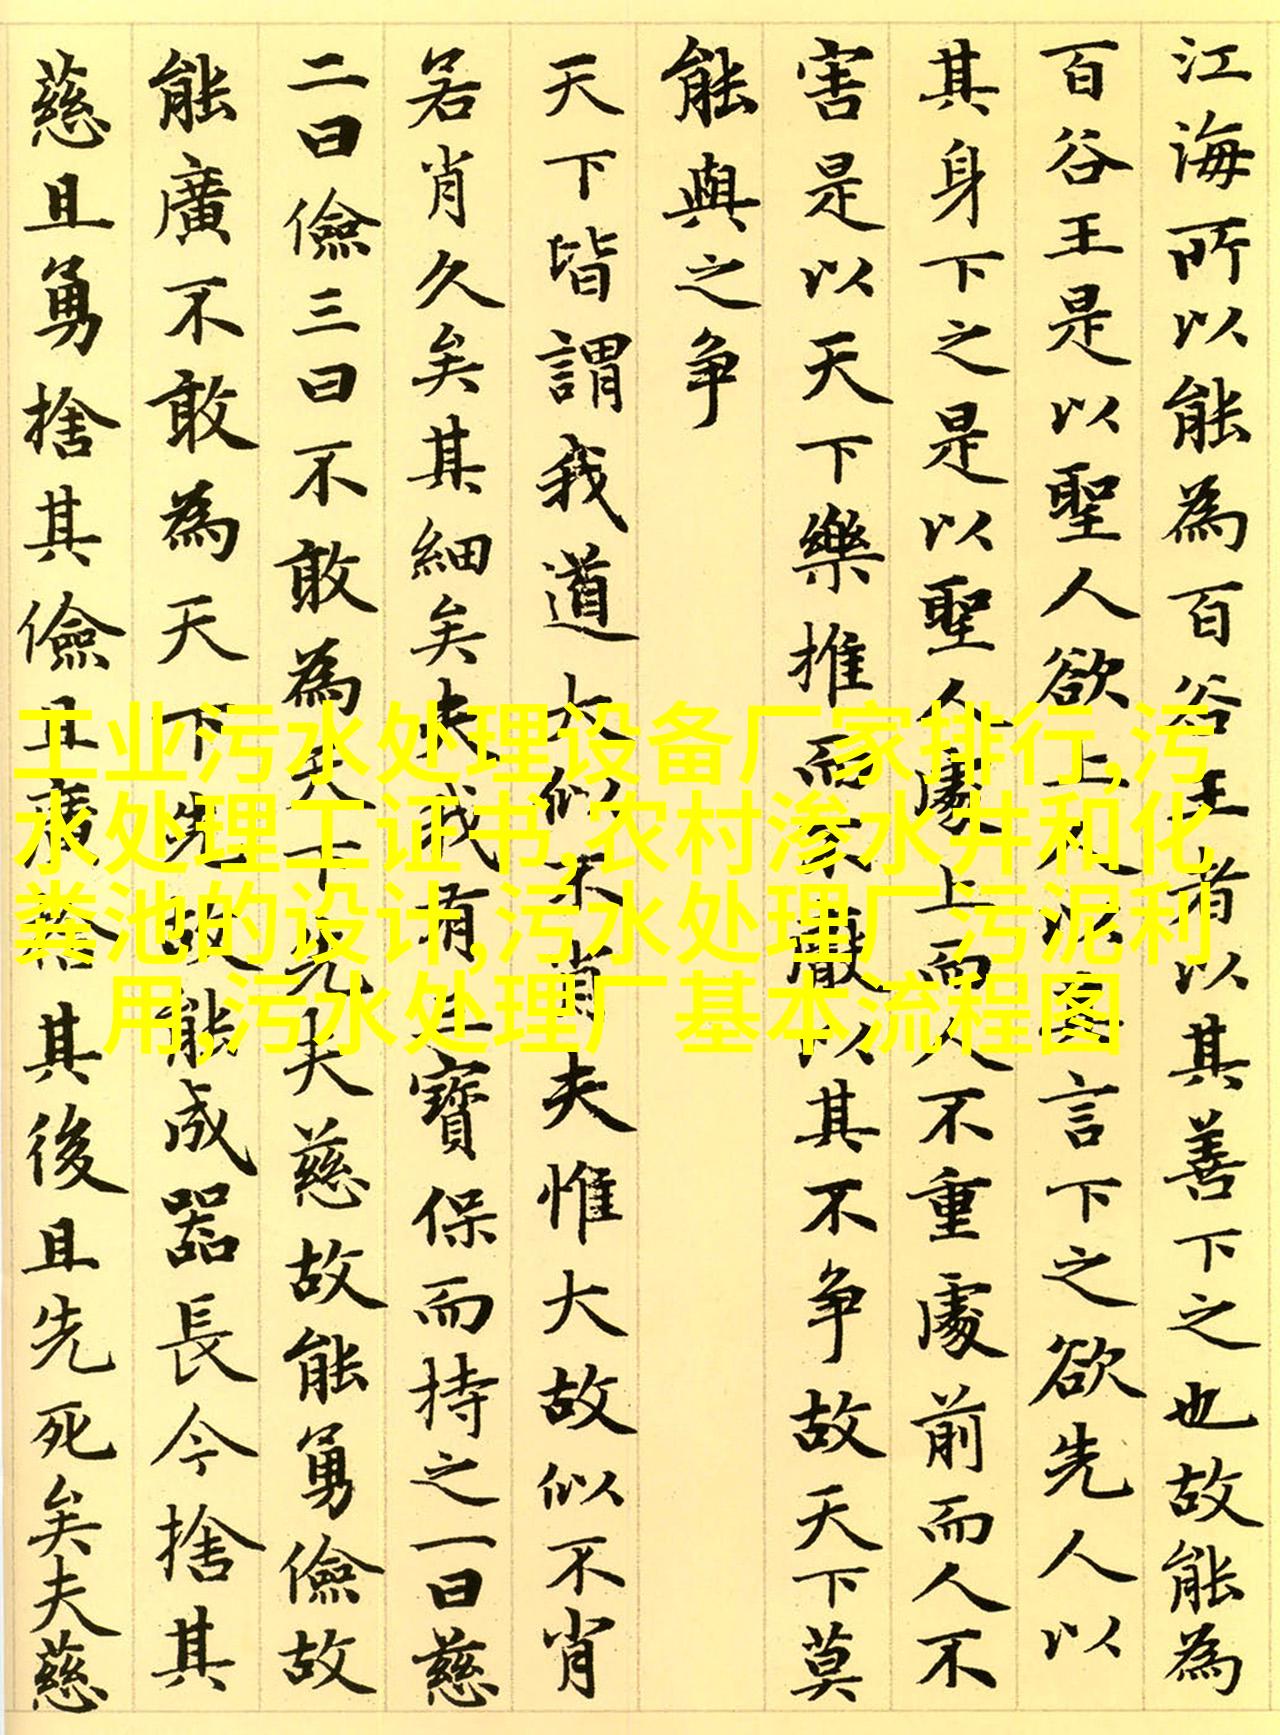 江海所以能為百谷王者以其善下之也故能為
百谷王是以聖人欲上人以其言下之欲先人以
其身下之是以聖人處上而人不重處前而人不
害是以天下樂推而不厭以其不争故天下莫
能與之争
天下皆謂我道大似不肖夫惟大故似不肖
若肖久矣其細矣夫我有三寶保而持之一曰慈
二曰儉三曰不敢為天下先夫慈故能勇儉故
能廣不敢為天下先故能成器長今捨其
慈且勇捨其儉且廣捨其後且先死矣夫慈
工业污水处理设备厂家排行,污
水处理工证书,农村渗水井和化
粪池的设计,污水处理厂污泥利
用,污水处理厂基本流程图